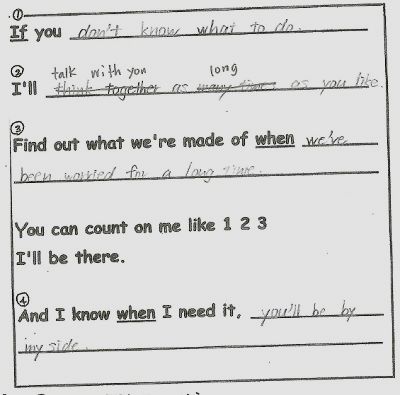 ①
If you don't know what to do.
② talk with you long
I'll think together as many times as you like.
③
Find out what we're made of when we've
been worried for a long time.
You can count on me like 1 2 3
I'll be there.
④
And I know when I need it, you'll be by
my side.